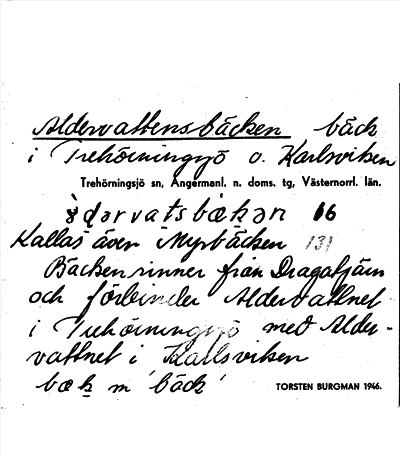 Aldervattensbäcken bäck
i Trehörningsjö o. Karlsviken
Trehörningsjö sn, Angermanl. n. doms. tg, Västernorrl. län.
ạ̀dərvatsbækən 16
Kallas även Myrbäcken 131
Bäcken rinner från Dragatjärn
och förbinder Aldervattnet
i Trehörningsjö med Alder-
vattnet i Karlsviken
bæk m 'bäck'
TORSTEN BURGMAN 1946.